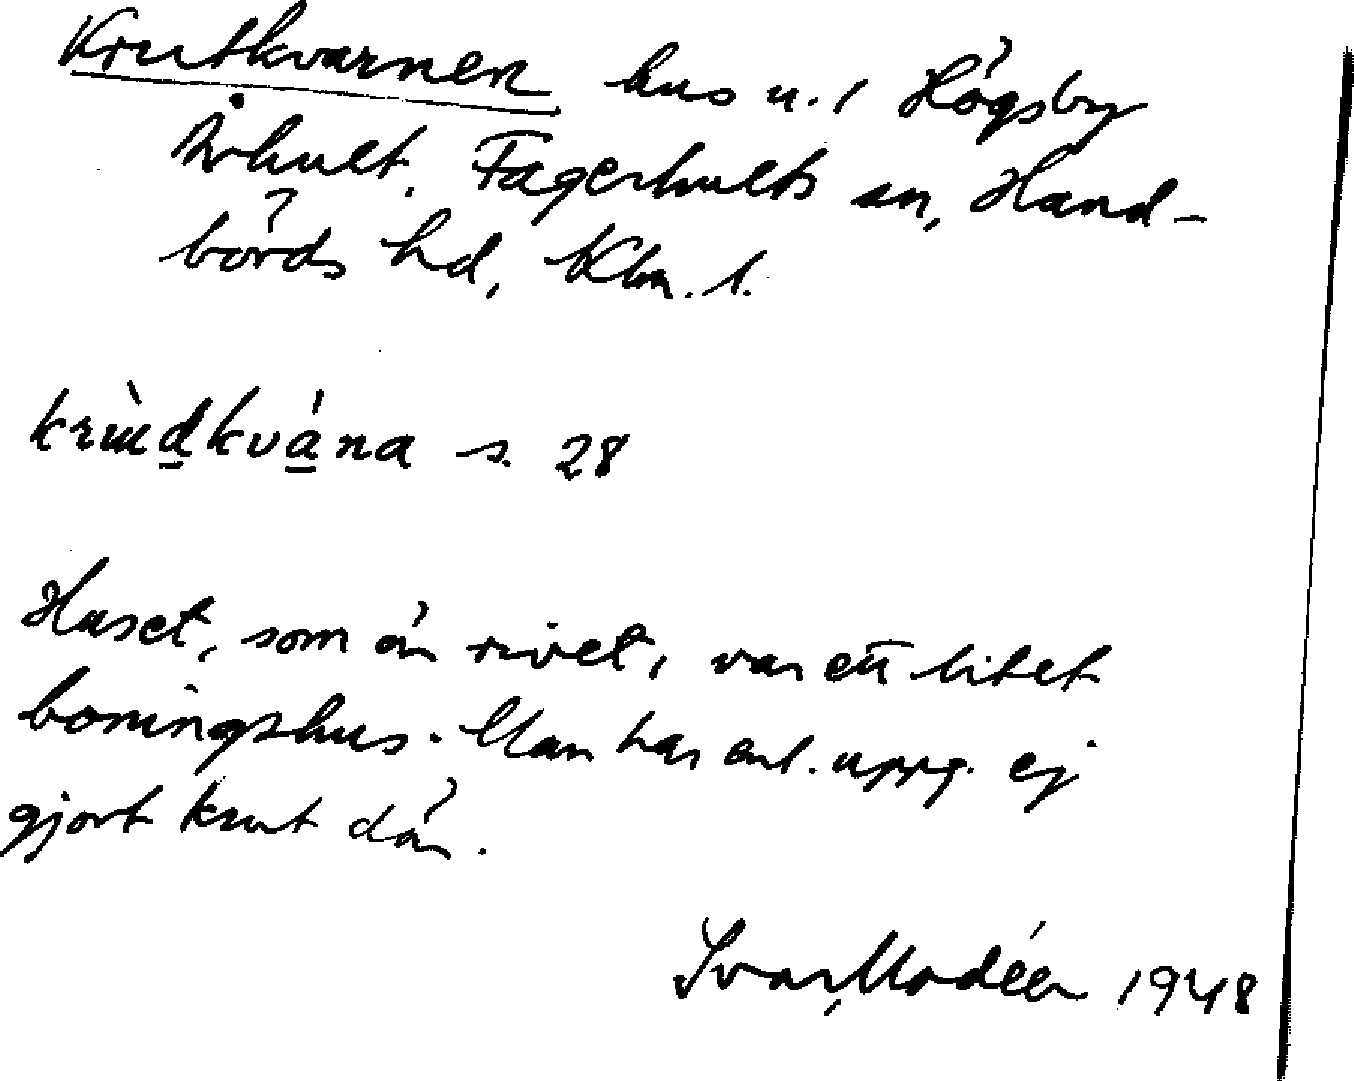 Krutkvarnen hus u. Högsby
Århult, Fagerhults sn, Hand-
börds hd, Klm. l.
krùd̲kvá̲na s. 28
Huset, som är rivet, var ett litet
boningshus. Man har enl. uppg. ej
gjort krut där.
Ivar Modéer 1948